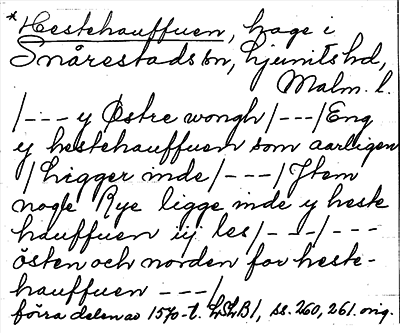 *Hestehauffuen, hage i
Snårestads sn, Ljunits hd,
Malm. l.
/--- y Østre wongh/---/Eng
y hestehauffuen som aarligen
/ligger inde/---/Jtem
nogle Rye ligge inde y heste
hauffuen iij les/---/---
östen och norden for heste-
hauffuen ---/
förra delen av 1570-t. LSLB1, ss. 260, 261. orig.